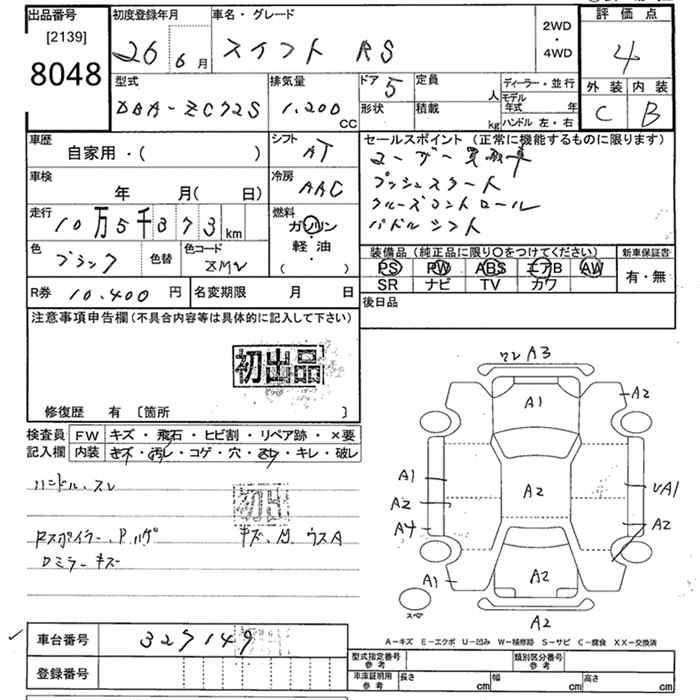 出品番号 初度登録年月 車名・グレード 評価点
[2139] 2WD
8048 26 6月 スイフト RS 4WD 4
型式 排気量 ドア 5 定員 人 ディーラー・並行 外装 内装
DBA-ZC72S 1.200 CC 形状 積載 kg モデル年式 年 C B
ハンドル 左・右
車歴 自家用・( ) シフト AT セールスポイント (正常に機能するものに限ります)
ユーザー買取車
車検 年 月( 日) 冷房 AAC プッシュスタート
クルーズコントロール
走行 10万5千873km 燃料 ガソリン パドルシフト
軽・油
( )
色 ブラック 色替 色コード ZMV 装備品 (純正品に限り〇をつけてください) 新車保証書
PS PW ABS エアB AW 有・無
R券 10.400円 名変期限 月 日 SR ナビ TV カワ
注意事項申告欄(不具合内容等は具体的に記入して下さい) 後日品
初出品
修復歴 有 [箇所 ]
検査員 FW キズ・飛石・ヒビ割・リペア跡・×要
記入欄 内装 キズ・汚レ・コゲ・穴・スレ・キレ・破レ
ハンドル、スレ
Rスポイラー、P.ハゲ キズ、M、ウスA
Dミラーキズ
ワレ A3
A1 A2
A1
A2 A2 UA1
A4 A2
A1 A2
スペア A2
A-キズ E-エクボ U-凹み W-補修跡 S-サビ C-腐食 XX-交換済
✓ 車台番号 327149
登録番号
型式指定番号 参考 類別区分番号 参考
車庫証明用 参考 長さ cm 幅 cm 高さ cm